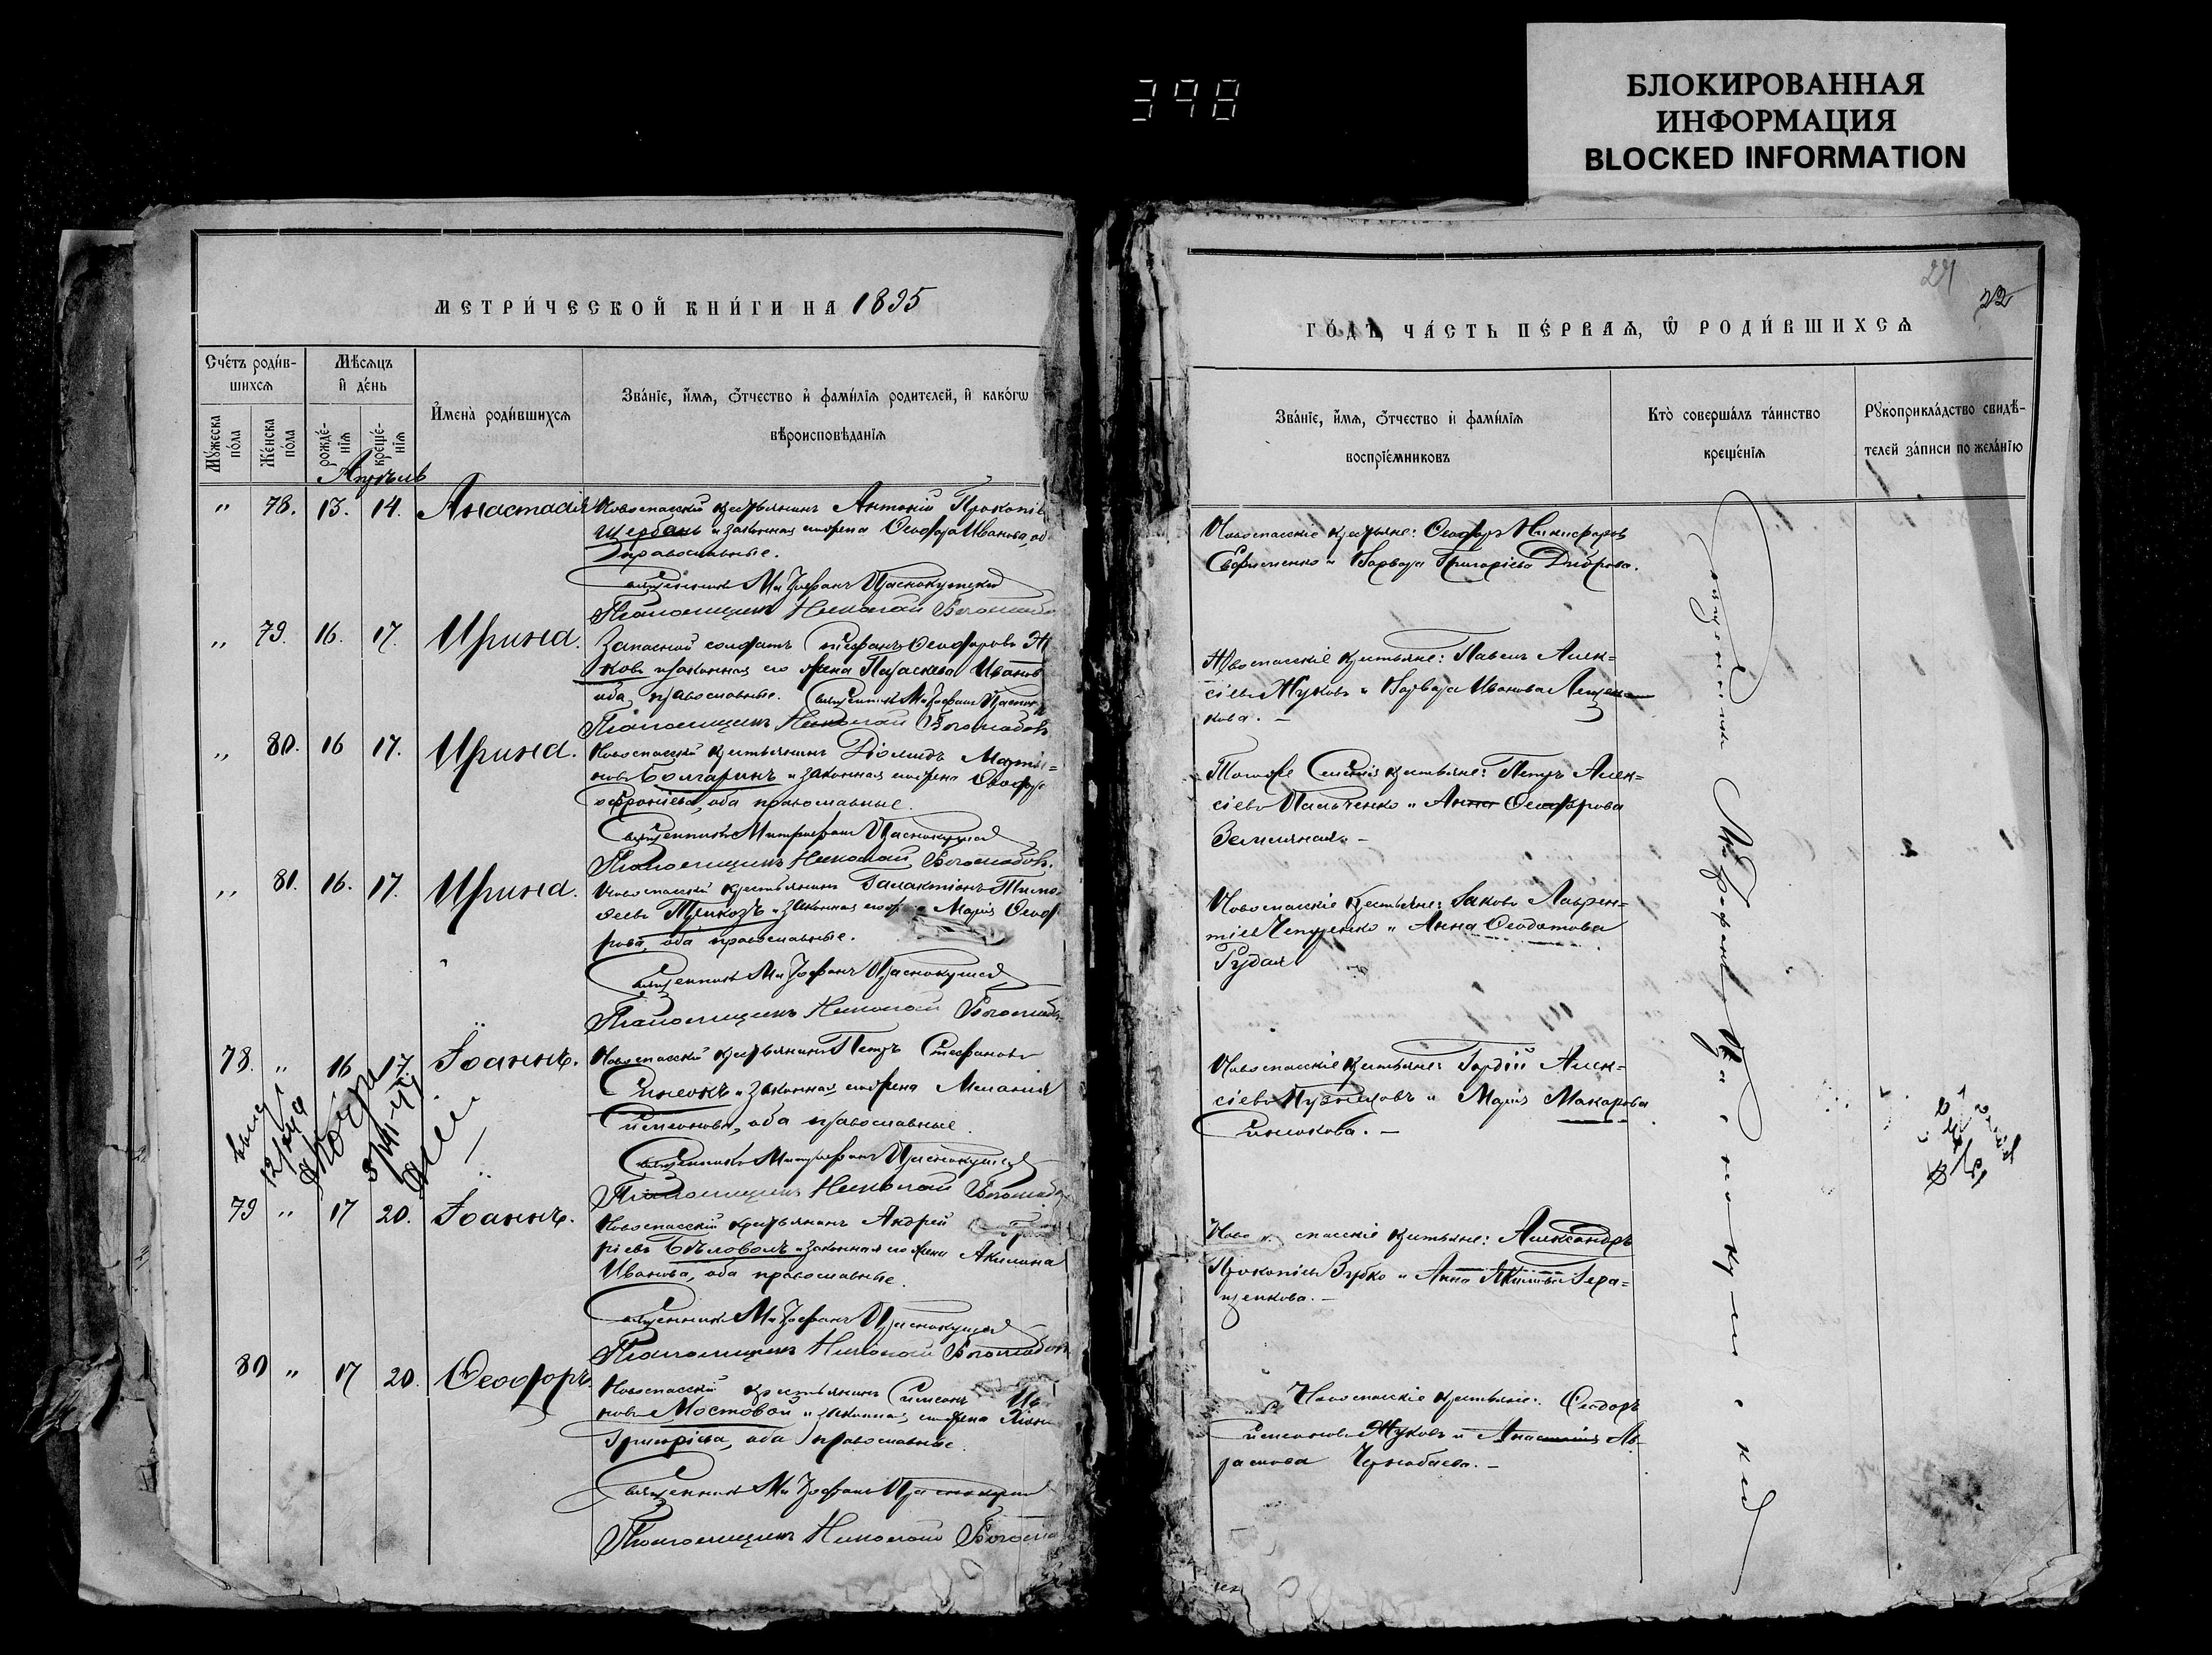 398
БЛОКИРОВАННАЯ
ИНФОРМАЦИЯ
BLOCKED INFORMATION
МЕТРИ́ЧЕСКОЙ КНИ́ГИ НА 1895
Сче́тъ роди́в-
шихсѧ
Мѣ́сѧцъ
и҆ де́нь
И҆мена̀ роди́вшихсѧ
Зва́нїе, и҆́мѧ, ѻ҆́тчество и҆ фами́лїѧ родителей, и҆ како́гѡ
вѣроисповѣ́данїѧ
Мꙋ́жеска
по́ла
Же́нска
по́ла
рожде́-
нїѧ
креще́-
нїѧ
Апрѣль
" 78. 13. 14. Анастасія
Новоспасскій крестьянинъ Антоній Прокопіе
Щербань и законная его жена Ѳеодора Иванова, об
православные.
Священникъ Митрофанъ Краснокутскій
Псаломщикъ Николай
" 79. 16. 17. Ирина.
Запасной солдатъ Стефанъ Ѳеодоровъ Ж
ковъ и законная его жена Параскева Иванов
оба православные. Священникъ Митрофанъ
Псаломщикъ Николай
" 80. 16 17. Ирина.
Новоспасскій крестьянинъ Діомидъ Марты=
новъ Болгаринъ и законная его жена
оба православные.
Священникъ Митрофанъ Краснокутскій
Псаломщикъ Николай
" 81. 16. 17. Ирина.
Новоспасскій крестьянинъ Галактіонъ Тимо
ѳеевъ и законная его Марія Ѳеод
рова, оба православные.
Священникъ Митрофанъ Краснокутскій
Псаломщикъ Николай
78. " 16 17. Іоаннъ.
Новоспасскій крестьянинъ Петръ Стефановъ
Синеокъ и законная его жена Меланія
Симеонова, оба православные.
Священникъ Митрофанъ Краснокутскій
Псаломщикъ Николай
79 " 17 20. Іоаннъ.
Новоспасскій крестьянинъ Андрей
ріевъ Бѣловолъ и законная его жена Акилина
Иванова, оба православные.
Священникъ Митрофанъ Краснокутскій
Псаломщикъ Николай
80 " 17 20. Ѳеодоръ.
Новоспасскій крестьянинъ Симеонъ
новъ Мостовой и законная его жена
Григоріева, оба православные.
Священникъ Митрофанъ
Псаломщикъ Николай
22
ГО́ДЪ, ЧА́СТЬ ПЕ́РВАѦ, Ѡ҆ РОДИ́ВШИХСѦ
Зва́нїе, и҆́мѧ, ѻ҆́тчество и҆ фами́лїѧ
воспрїе́мниковъ
Кто̀ соверша́лъ та́инство
креще́нїѧ
Рꙋкоприкла́дство свидѣ́-
телей за́писи по жела́нїю
Новоспасскіе крестьяне: Ѳеодоръ Никифоровъ
Евфименко и Варвара Григоріева Диброва.
Новоспасскіе крестьяне: Павелъ Алек=
сіевъ Жуковъ и Варвара Иванова
кова. -
Тогоже Селенія крестьяне: Петръ Алек=
сіевъ Пальченко и Анна Ѳеодорова
Земляная. -
Новоспасскіе крестьяне: Іаковъ Лаврен=
тіевъ Чепуренко и Анна Ѳеодотова
Рудая
Новоспасскіе крестьяне: Гордій Алек=
сіевъ Кузнецовъ и Марія Макарова
Синеокова. -
Ново спасскіе крестьяне: Александръ
Прокопіевъ Зубко и Анна Гера=
щенкова. -
Новоспасскіе крестьяне: Ѳеодоръ
Симеоновъ Жуковъ и Анастасія Ав
рамова Чернобаева. -
Священникъ Митрофанъ Краснокутскій